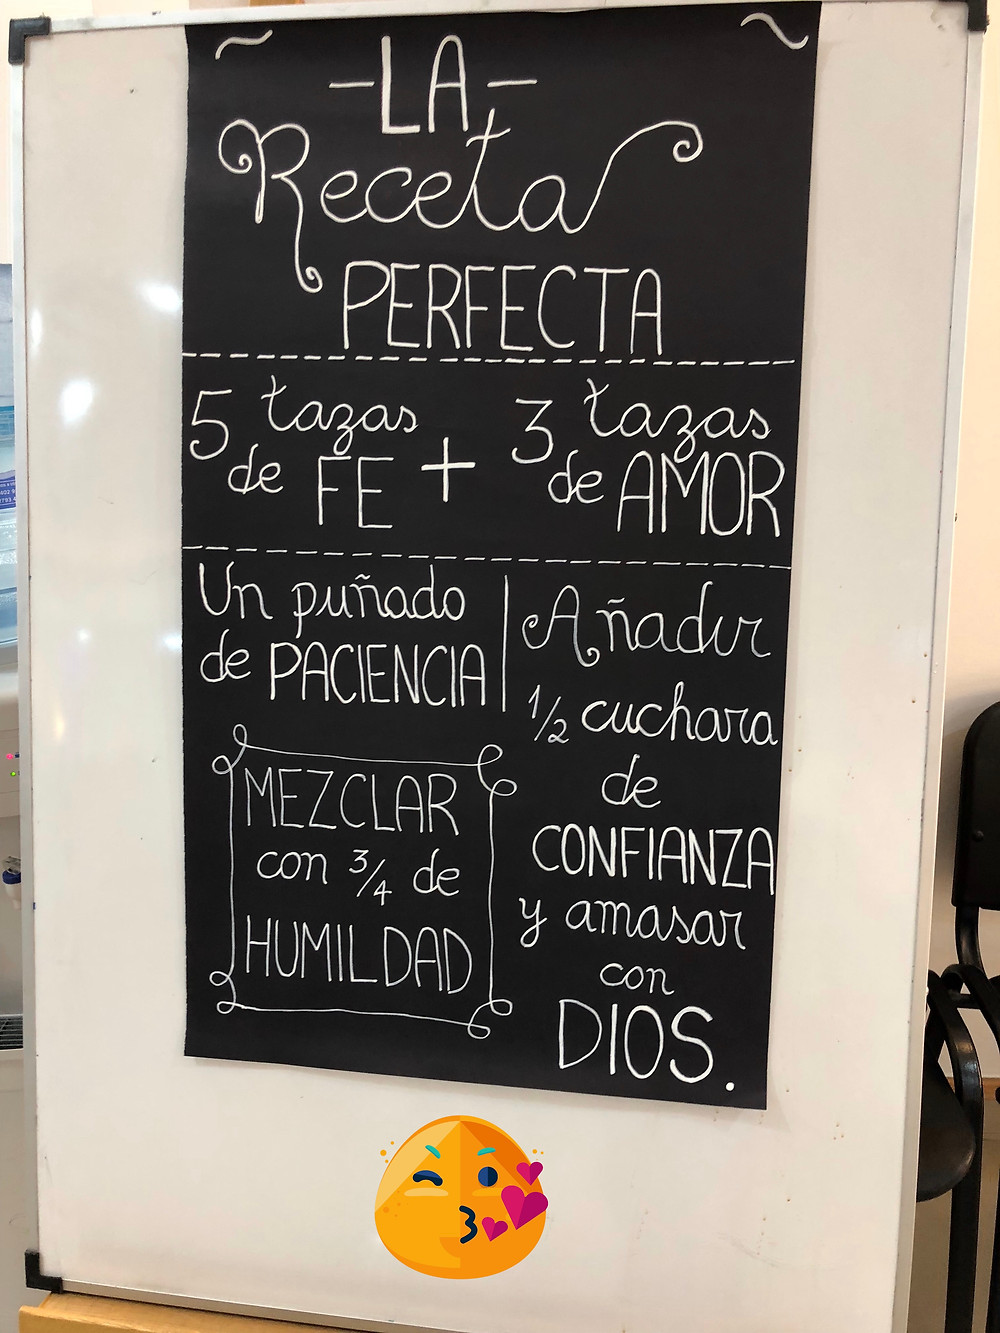 ~ -LA- ~
Receta
PERFECTA
5 tazas
de FE
+
3 tazas
de AMOR
Un puñado
de PACIENCIA
MEZCLAR
con 3/4 de
HUMILDAD
Añadir
1/2 cuchara
de
CONFIANZA
y amasar
con
DIOS.